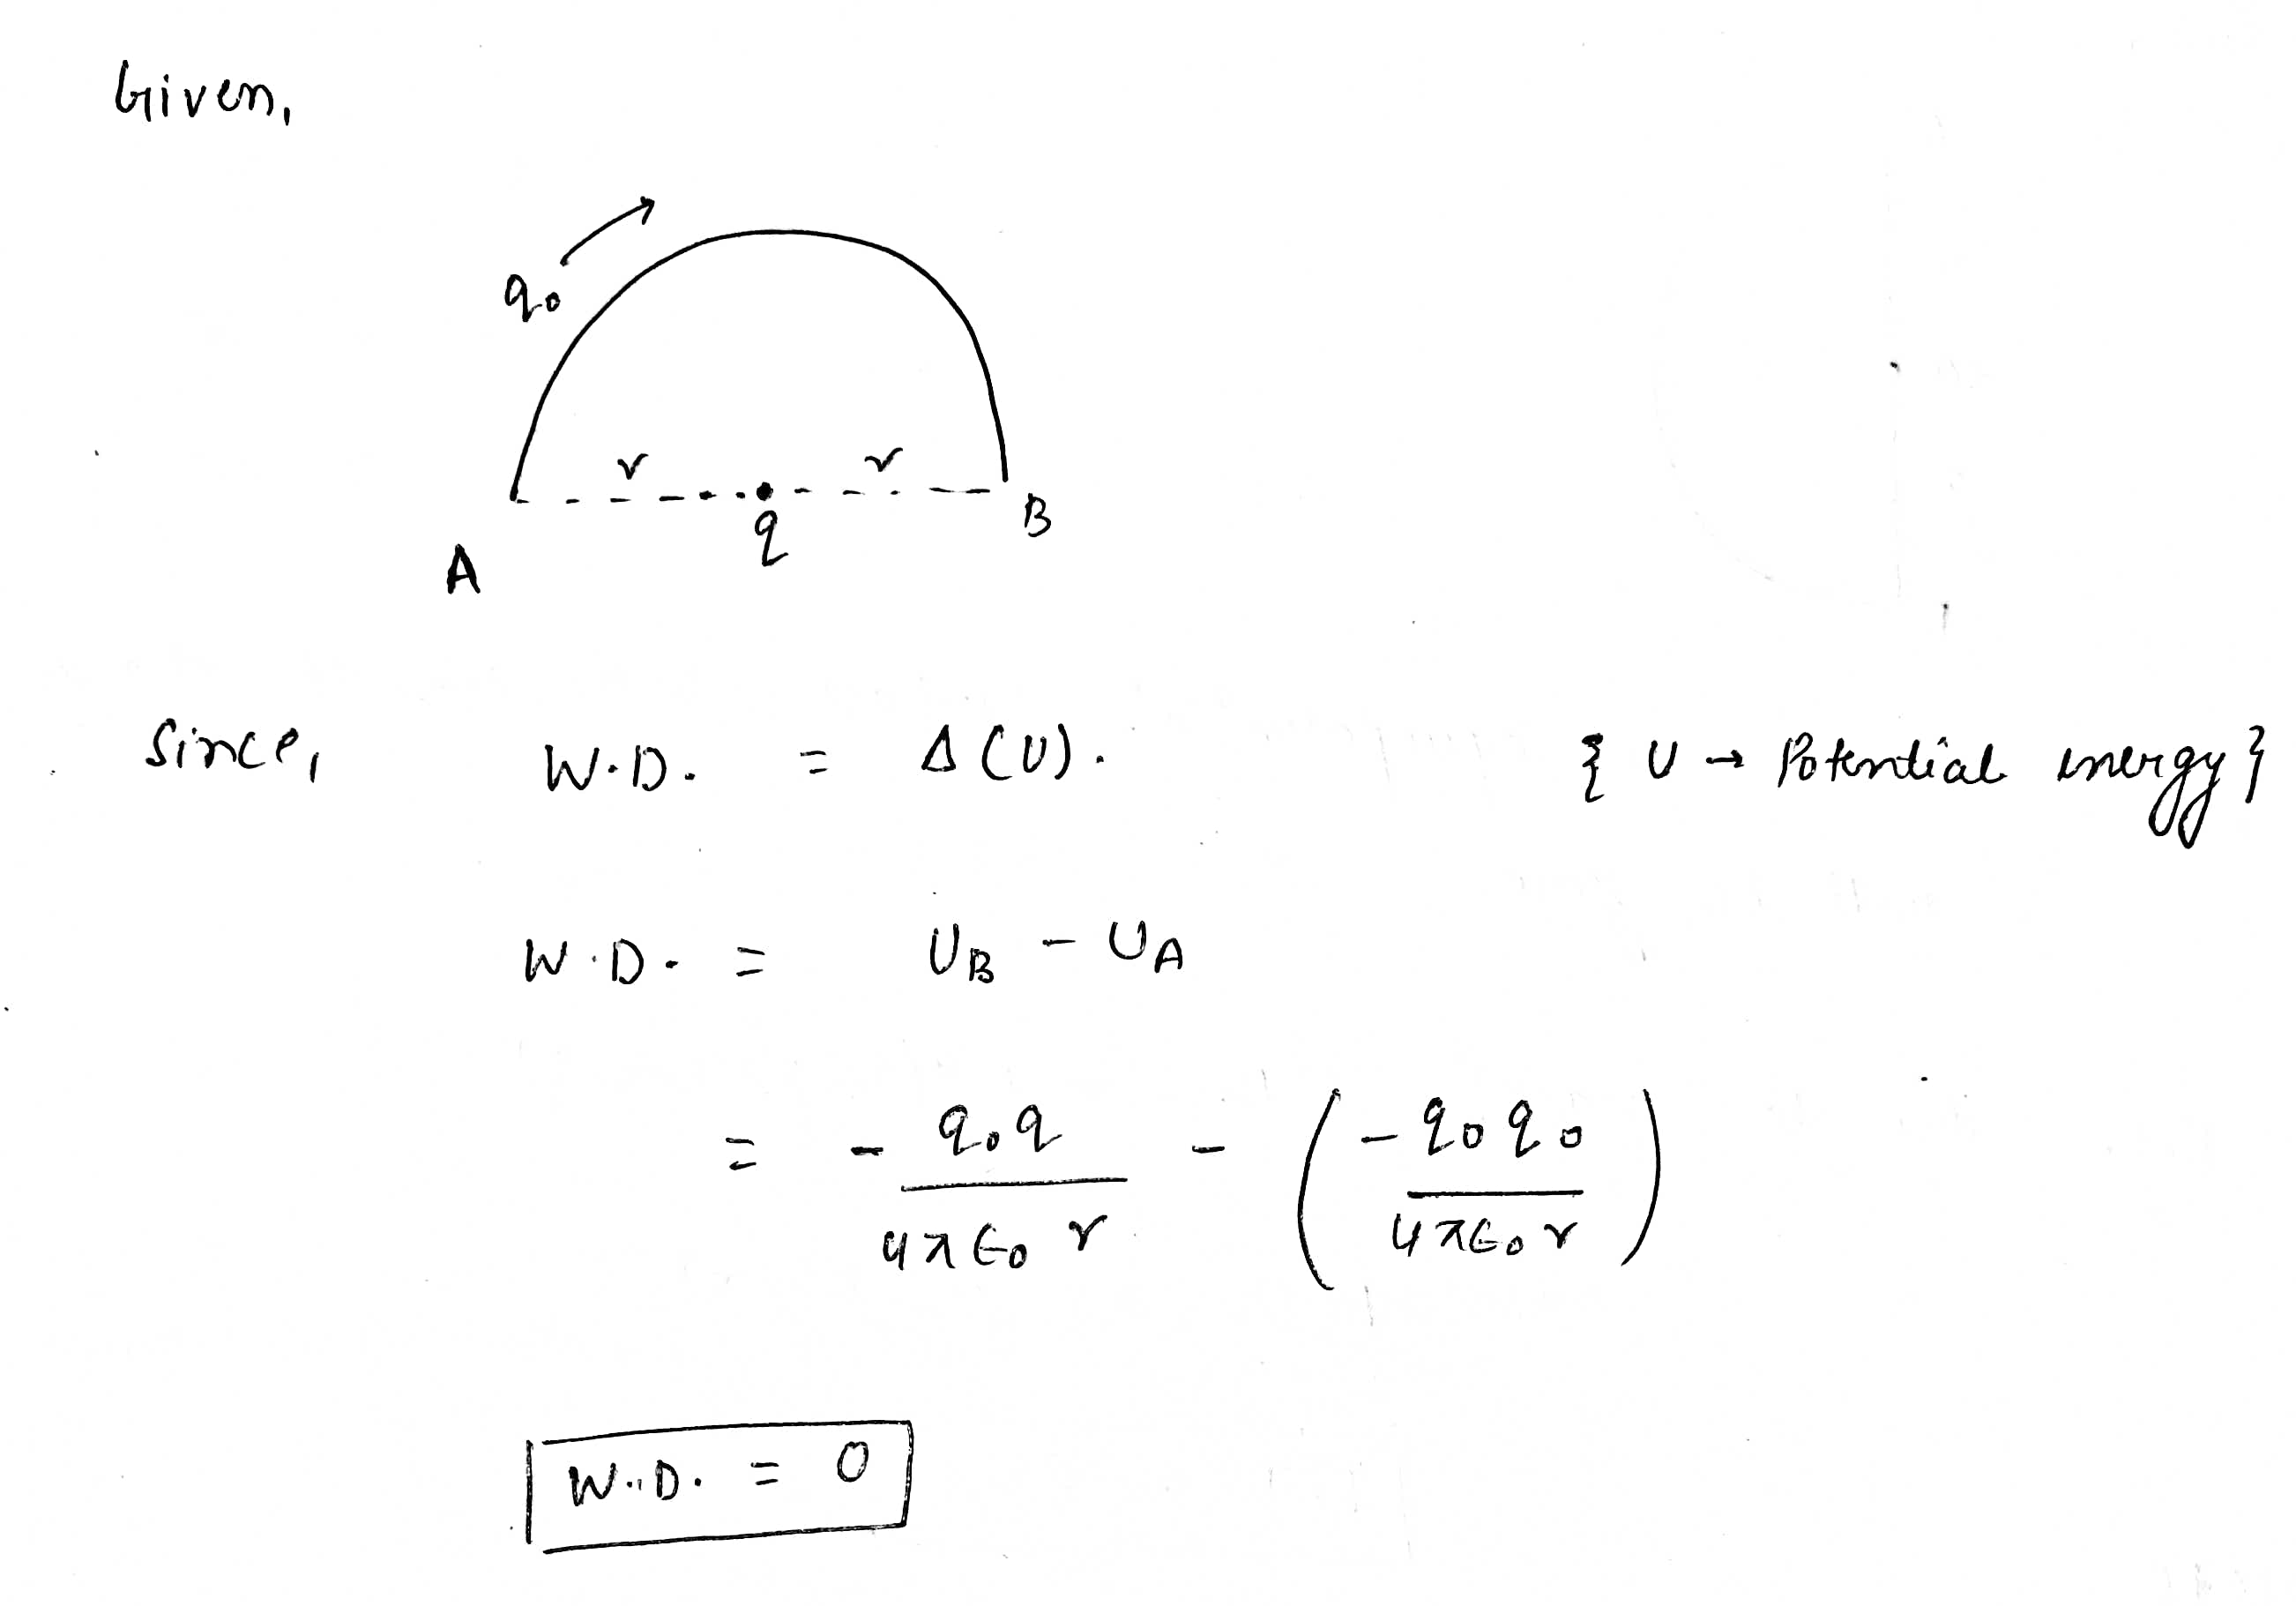 Given,
q₀
r r
q
B
A
Since, W.D. = Δ(U). { U → Potential energy}
W.D. = U_B - U_A
= - q₀q / 4πε₀ r - ( -q₀q₀ / 4πε₀r )
W.D. = 0